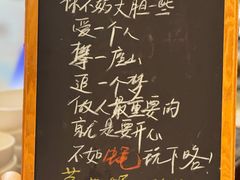 你不妨大胆一些
爱一个人
攀一座山
追一个梦
做人最重要的
就是要开心
不如
玩下咯！